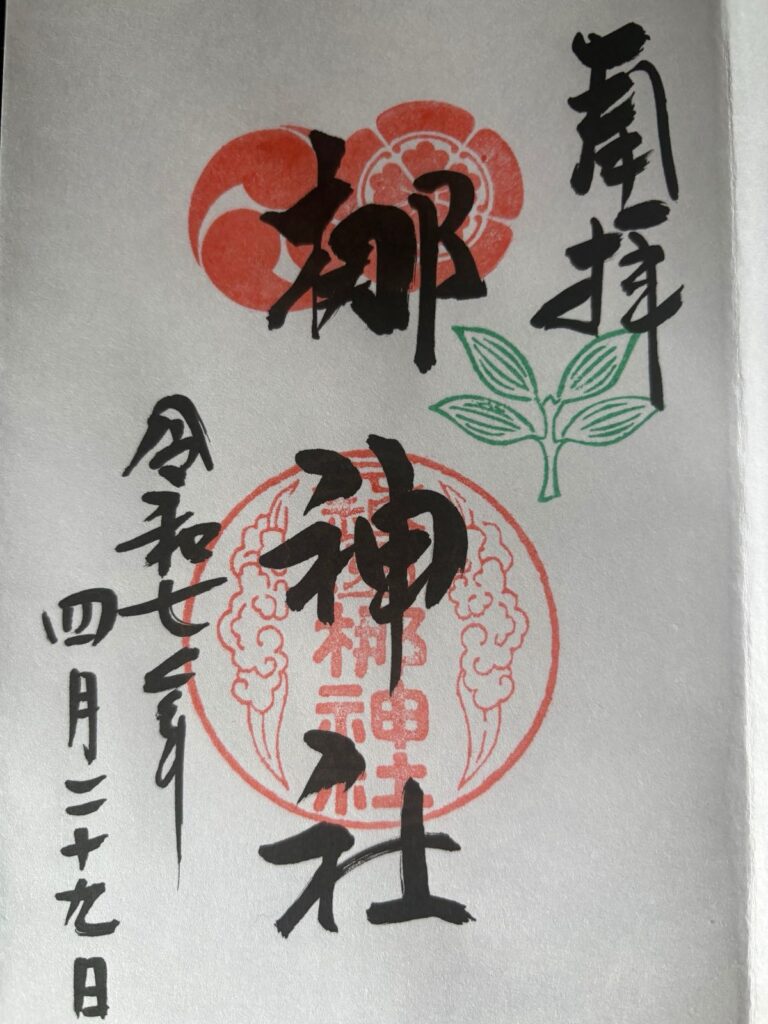 奉拝
梛神社
梛神社
令和七年
四月二十九日